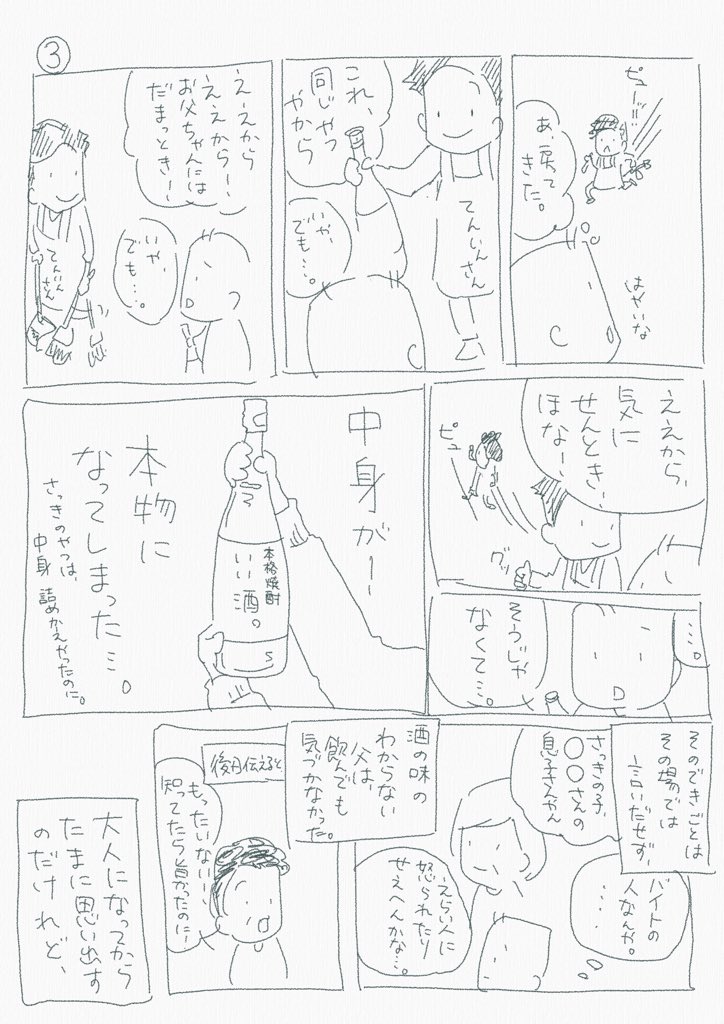 ③
ピューッ!!
あ、戻って
きた。
はやいな
これ、
同じやつ
やから
てんいんさん
いや、
でも…。
ええから
ええから!
お父ちゃんには
だまっときー!
いや、
でも…。
てんいん
さん
ええから、
気に
せんとき、
ほなー!
ピュー
グッ
…。
そうじゃ
なくて…。
中身が〜
本格焼酎
いい酒。
本物に
なってしまった…。
さっきのやつは、
中身 詰めかえやったのに。
そのできごとは
その場では
言いだせず、
さっきの子、
〇〇さんの
息子さんやん
バイトの
人なんや。
…
えらい人に
怒られたり
せえへんかな…。
酒の味の
わからない
父は、
飲んでも
気づかなかった。
後日伝えると
もったいない!
知ってたら旨かったのに!
大人になってから
たまに思い出す
のだけれど、